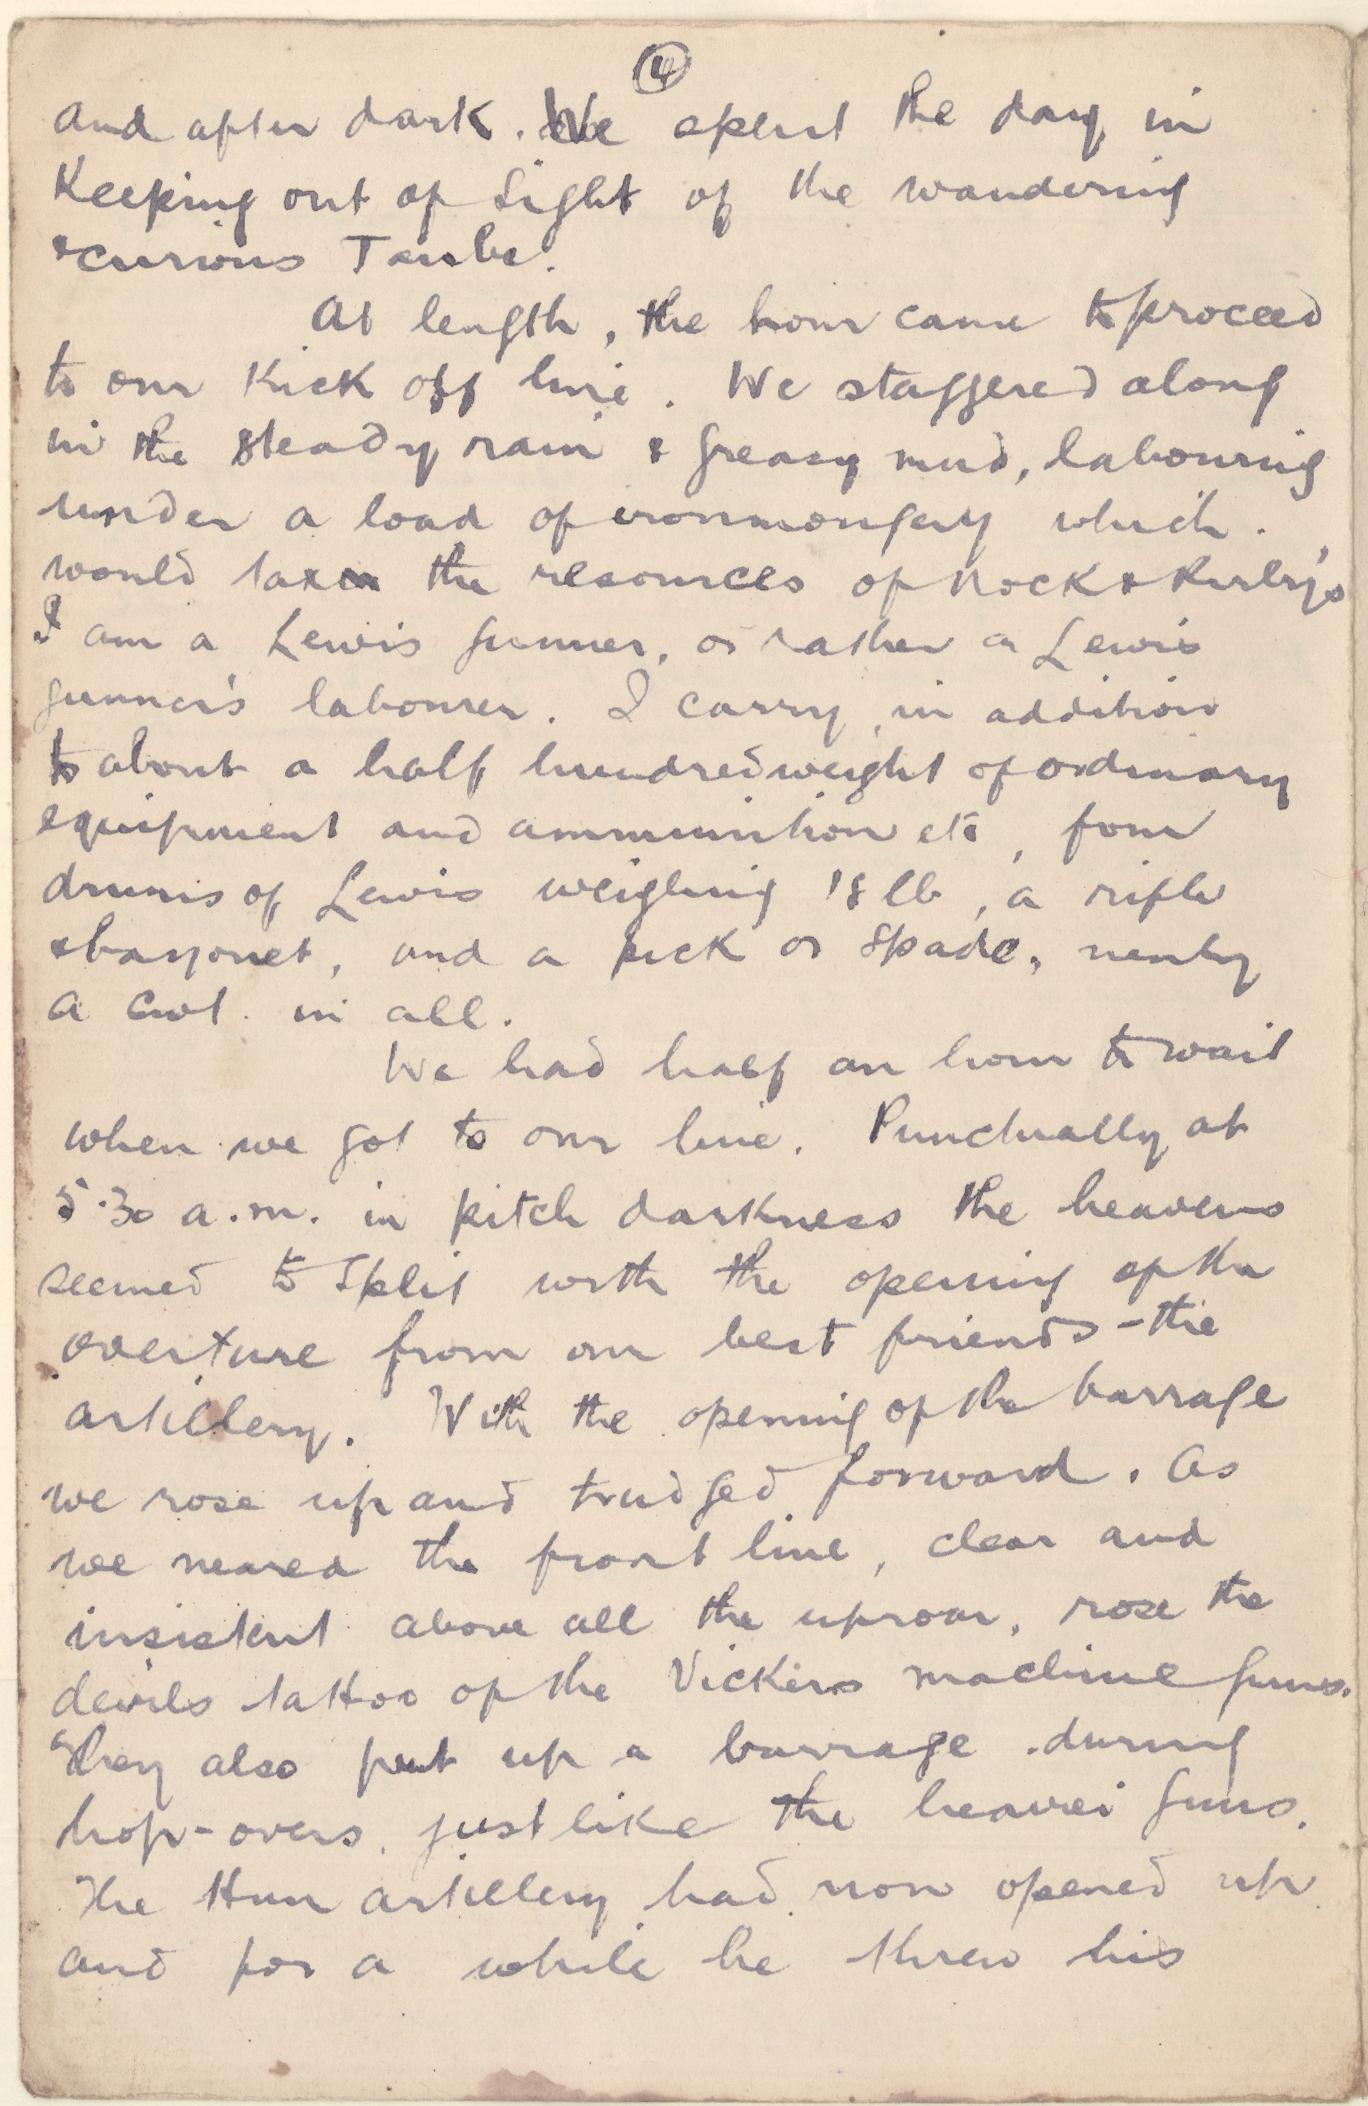 4
and after dark. We spent the day in
Keeping out of Sight of the wandering
& curious Taube.
At length, the hour came to proceed
to our Kick off line. We staggered along
in the steady rain & greasy mud, labouring
under a load of ironmongery which
would tax the resources of Nock & Kirby's
I am a Lewis gunner, or rather a Lewis
gunner's labourer. I carry, in addition
to about a half hundredweight of ordinary
equipment and ammunition etc, four
drums of Lewis weighing 18 lb, a rifle
& bayonet, and a pick or spade, nearly
a cwt. in all.
We had half an hour to wait
when we got to our line. Punctually at
5.30 a.m. in pitch darkness the heavens
seemed to split with the opening of the
overture from our best friends - the
artillery. With the opening of the barrage
we rose up and trudged forward. As
we neared the front line, clear and
insistent above all the uproar, rose the
devils tattoo of the Vickers machine guns.
They also put up a barrage during
hop-overs, just like the heavier guns.
The Hun artillery had now opened up
and for a while he threw his